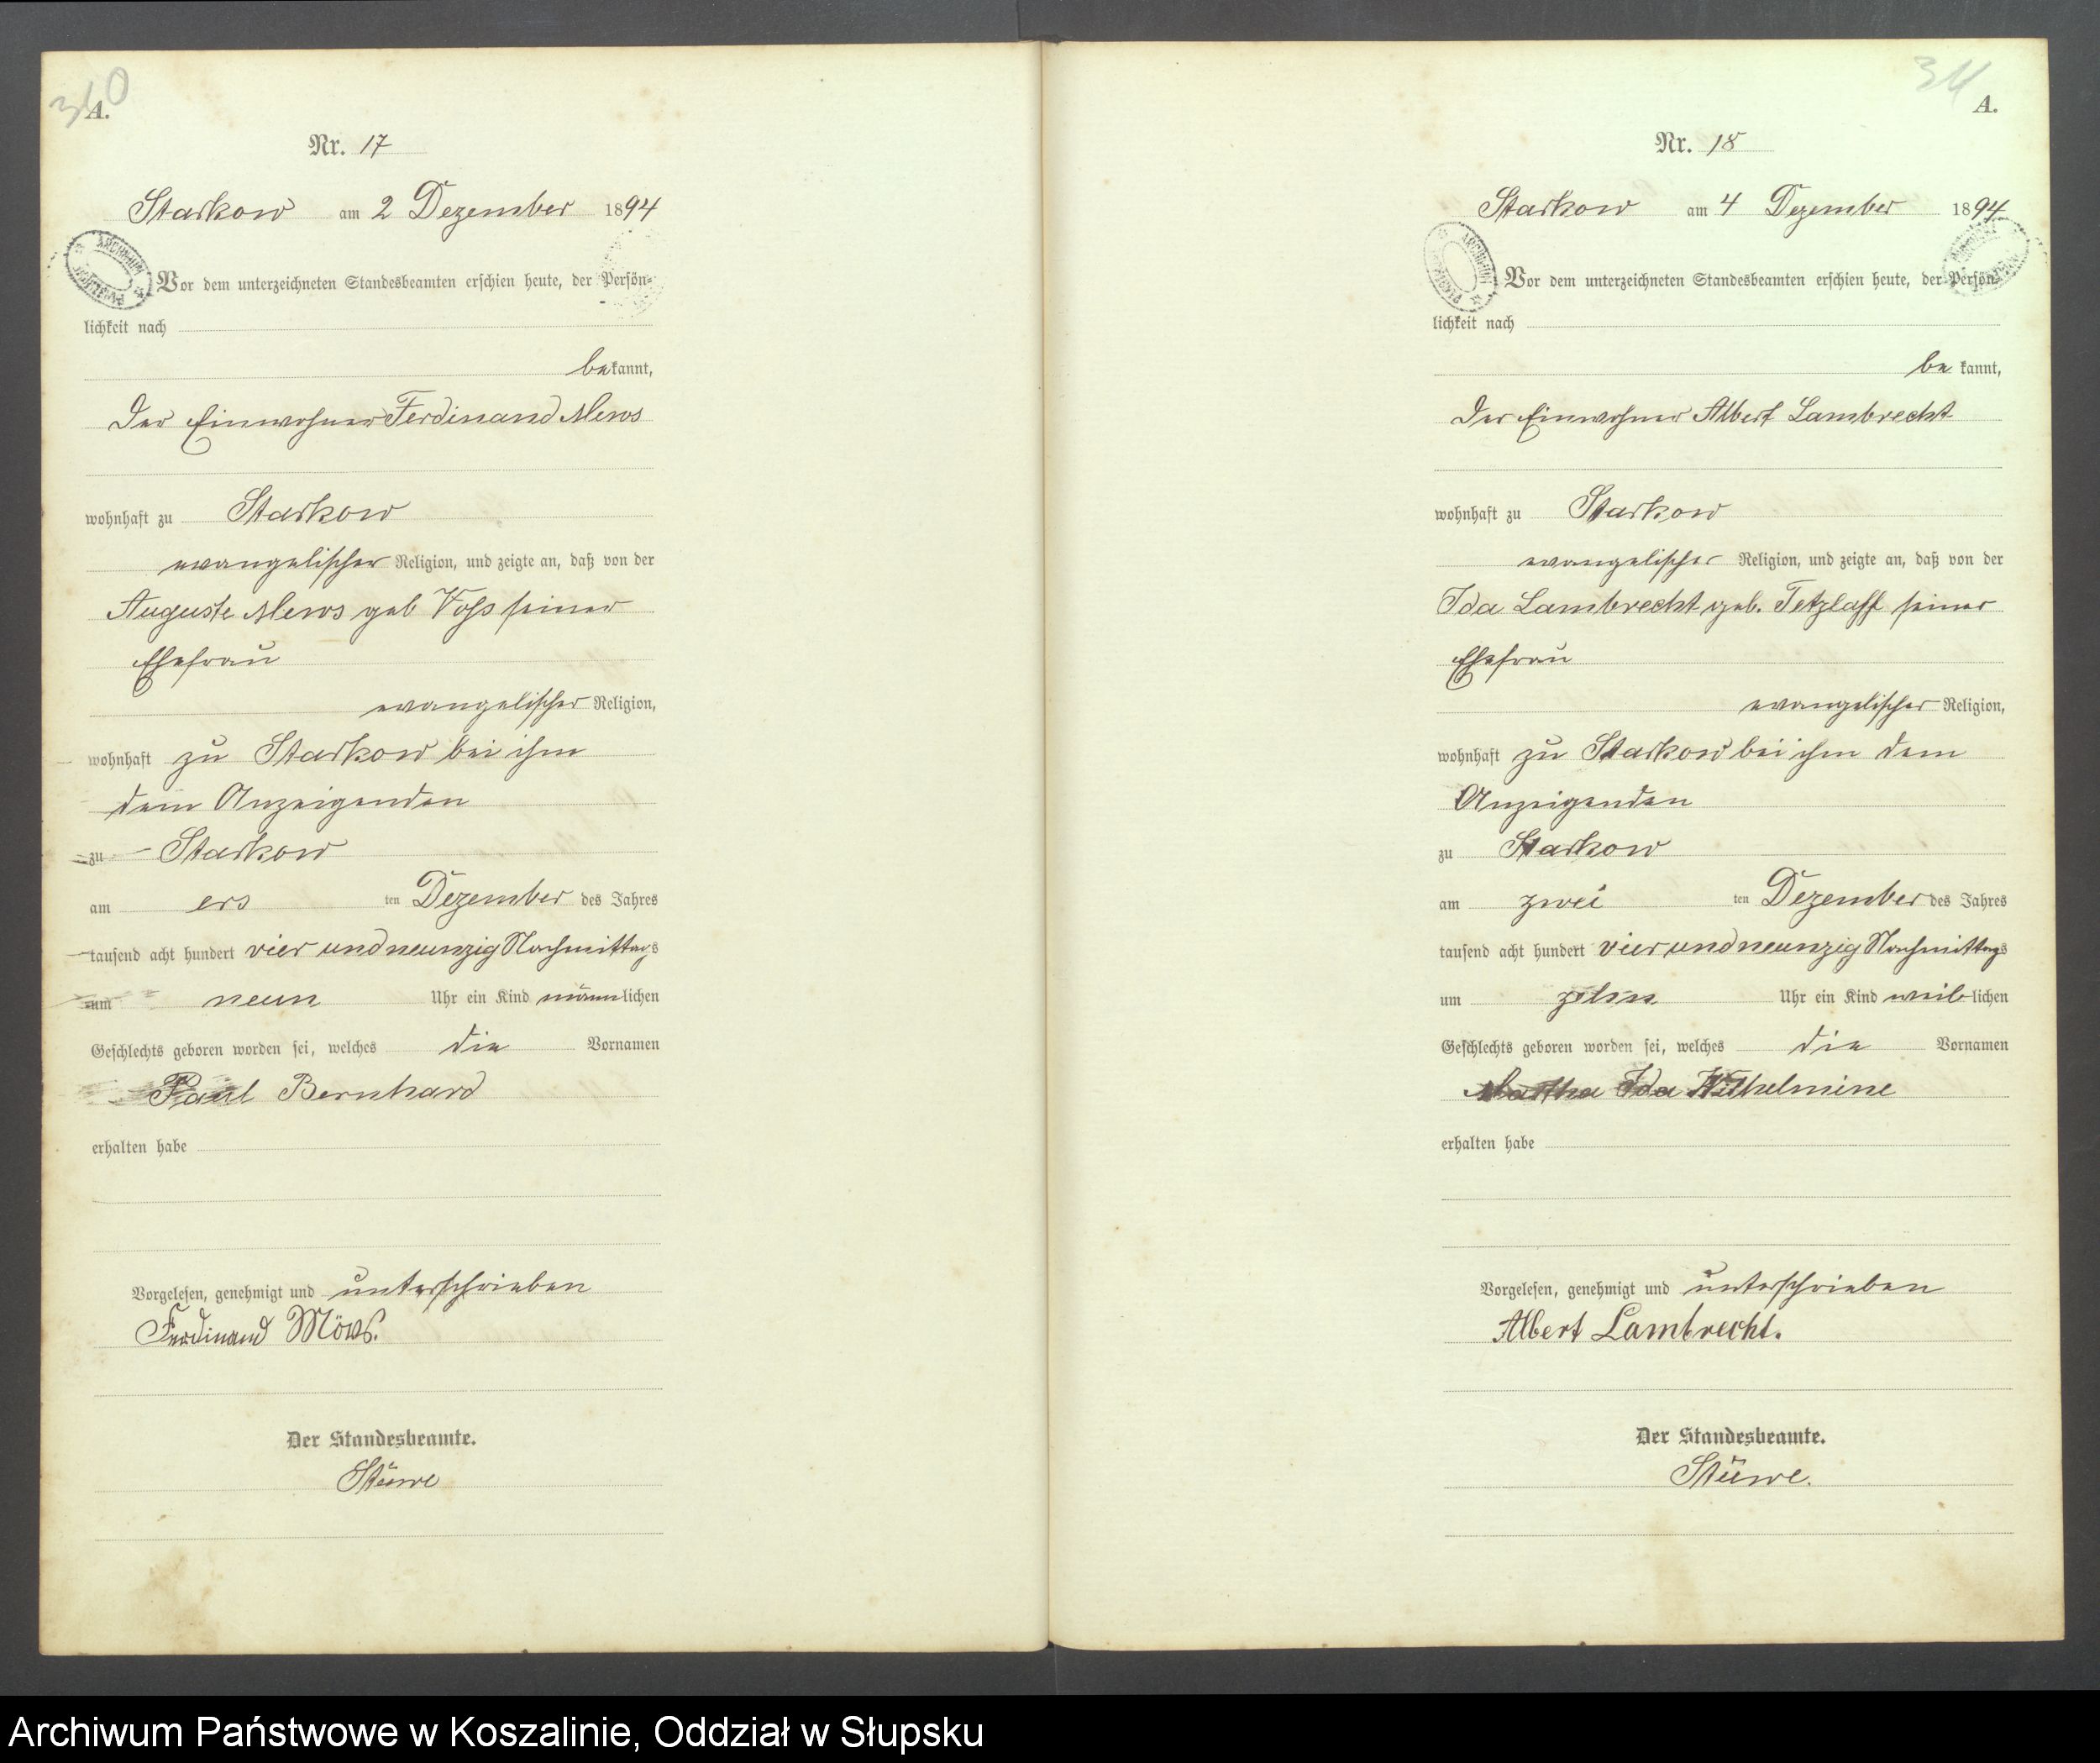 A.
Nr. 17
Starkow am 2 Dezember 1894
Vor dem unterzeichneten Standesbeamten erschien heute, der Persön-
lichkeit nach
bekannt,
Der Einwohner Ferdinand Mews
wohnhaft zu Starkow
evangelischer Religion, und zeigte an, daß von der
Auguste Mews geb Voss seiner
Ehefrau
evangelischer Religion,
wohnhaft zu Starkow bei ihm
dem Anzeigenden
zu Starkow
am ers ten Dezember des Jahres
tausend acht hundert vier und neunzig Nachmittags
um neun Uhr ein Kind männlichen
Geschlechts geboren worden sei, welches die Vornamen
Paul Bernhard
erhalten habe
Vorgelesen, genehmigt und unterschrieben
Ferdinand Möws.
Der Standesbeamte.
Stüwe
34
A.
Nr. 18
Starkow am 4 Dezember 1894
Vor dem unterzeichneten Standesbeamten erschien heute, der Persön-
lichkeit nach
be kannt,
Der Einwohner Albert Lambrecht
wohnhaft zu Starkow
evangelischer Religion, und zeigte an, daß von der
Ida Lambrecht geb. Tetzlaff seiner
Ehefrau
evangelischer Religion,
wohnhaft zu Starkow bei ihm dem
Anzeigenden
zu Starkow
am zwei ten Dezember des Jahres
tausend acht hundert vier und neunzig Nachmittags
um zehn Uhr ein Kind weiblichen
Geschlechts geboren worden sei, welches die Vornamen
Martha Ida Wilhelmine
erhalten habe
Vorgelesen, genehmigt und unterschrieben
Albert Lambrecht.
Der Standesbeamte.
Stüwe.
Archiwum Państwowe w Koszalinie, Oddział w Słupsku